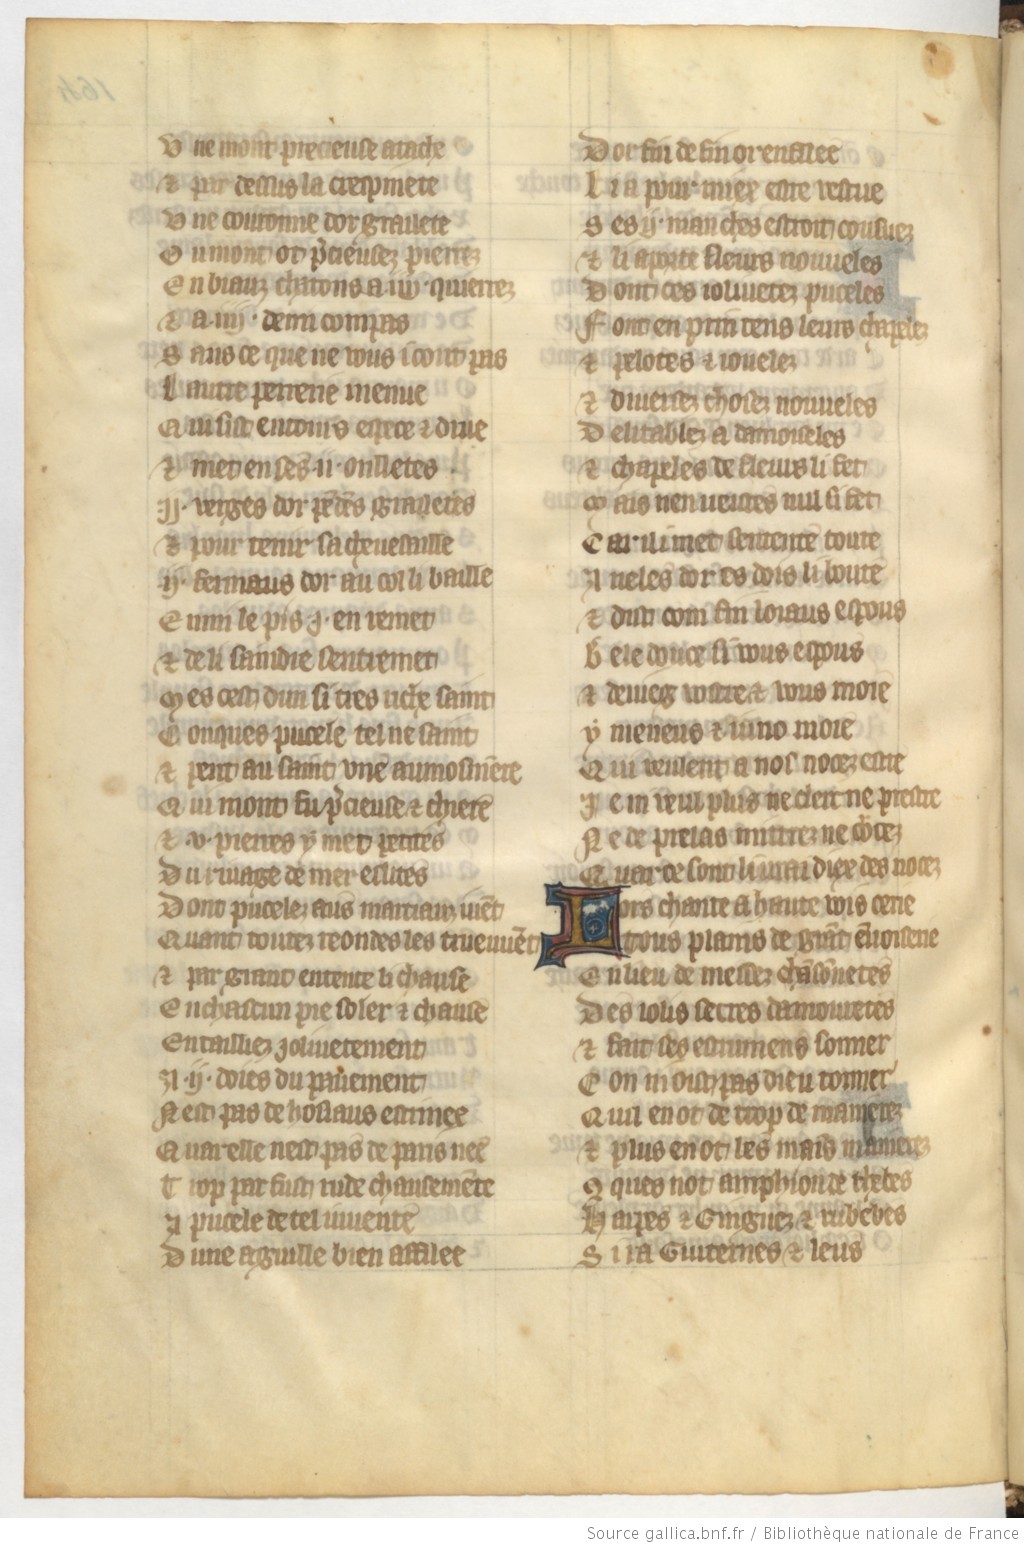 V ne mont precieuse atache
⁊ par dessus la crespinete
V ne couronne dor graliete
O u mont ot p̃cieusez pierrez
E n biauz chatons a iiij· quierrez
⁊ a iiij· demi compas
S ans ce que ne vous i cont pas
L autre perrerie menue
Q ui sist entours espece ⁊ drue
⁊ met en ses ·ii· orilletes
ij· verges dor pẽdẽs grailletes
⁊ pour tenir sa cheuessaille
ij· fermaus dor au col li baille
E nmi le pis ·j· en remet
⁊ de li saindre sentremet
M es cest dun si tres riche saint
C onques pucele tel ne saint
⁊ pent au saint vne aumosniere
Q ui mont fu p̃cieuse ⁊ chiere
⁊ ·v· pierres y met petites
D u riuage de mer eslites
D ont pucelez aus martiauz
Q uant toutez reondes les trueuuẽt
⁊ par grant entente li chause
E n chascun pie soler ⁊ chause
E ntailliez joliuetement
A ·ij· doies du pauement
N est pas de hosiaus estrinee
Q uar elle nest pas de paris nee
T rop par fust rude chaucemẽte
A pucele de tel iuuente
D une aguille bien affilee
D or fin de fin or enfilee
L i a pour miex estre vestue
S es ij· manches estroit cousuez
⁊ li aporte fleurs nouueles
D ont ces ioliuetez puceles
F ont en printens leurs chapelez
⁊ pelotes ⁊ iouelez
⁊ diuersez chosez nouueles
D elitablez a damoiseles
⁊ chapeles de fleurs li fet
M ais nen veistes nul si fet
C ar il i met sentente toute
A neles dor es dois li boute
⁊ dist com fin loiaus espous
B ele douce si vous espous
⁊ deuieg vostre ⁊ vous moie
Y meneus ⁊ iuno moie
Q ui veulent a nos nocez estre
J e ni veul plus ne clerc ne prestre
N e de prelas mittrez ne
Q uar ce sont li vrai diex des nocez
Lors chante a haute vois
tous plains de grãt
E n lieu de messez chãsõnetes
D es iolis secres damouretes
⁊ fait ses estrumens sonner
C on ni oist pas dieu tonner
Q uil en ot de trop de manierez
⁊ plus en ot les mais manierez
9 ques not amphion de thebes
H arpes ⁊ Gingues ⁊ rubebes
S i ra Guiternes ⁊ leus
Source gallica.bnf.fr / Bibliothèque nationale de France